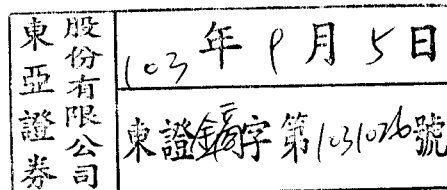 東亞證券
股份有限公司
103年9月5日
東證鎬字第1031026號